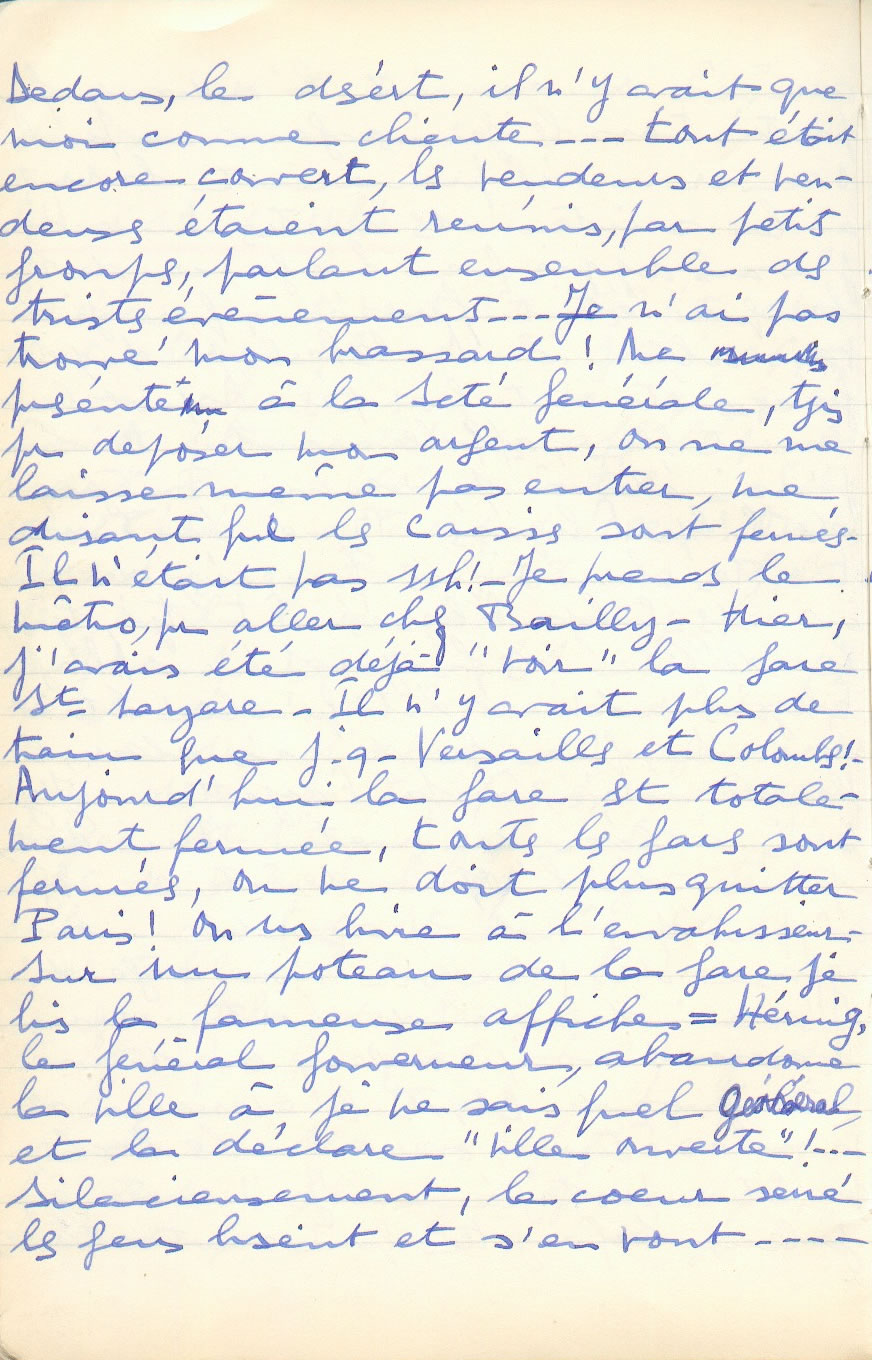 Dedans, le désért, il n'y avait que
moi comme cliente --- tout était
encore couvert, ls vendeurs et ven-
deuss étaient reúnis, par petits
groups, parlant ensemble ds
trists évènements --- Je n'ai pas
trouvé mon brassard ! Me
présenté à la Sté générale, tjrs
pr deposer mon argent, on ne me
laisse même pas entrer, me
disant que ls caisss sont fermés -
Il n'était pas 11h! - Je prends le
mêtro, pr aller chz Bailly - Hier,
j'avais été déjà "voir" la gare
St- Lazare - Il n'y avait plus de
train que j.q- Versaills et Colombs! -
Aujourd'hui la gare st totale-
ment fermée, touts ls gars sont
fermés, on ne doit plus quitter
Paris ! On ns livre à l'envahisseur -
Sur un poteau de la gare je
lis la fameuse affiche = Héring,
le général gouverneur, abandonne
la ville à je ne sais quel Général,
et la déclare "ville ouverte" ! ---
Silencieusement, le coeur serré
ls gens lisent et s'en vont ----